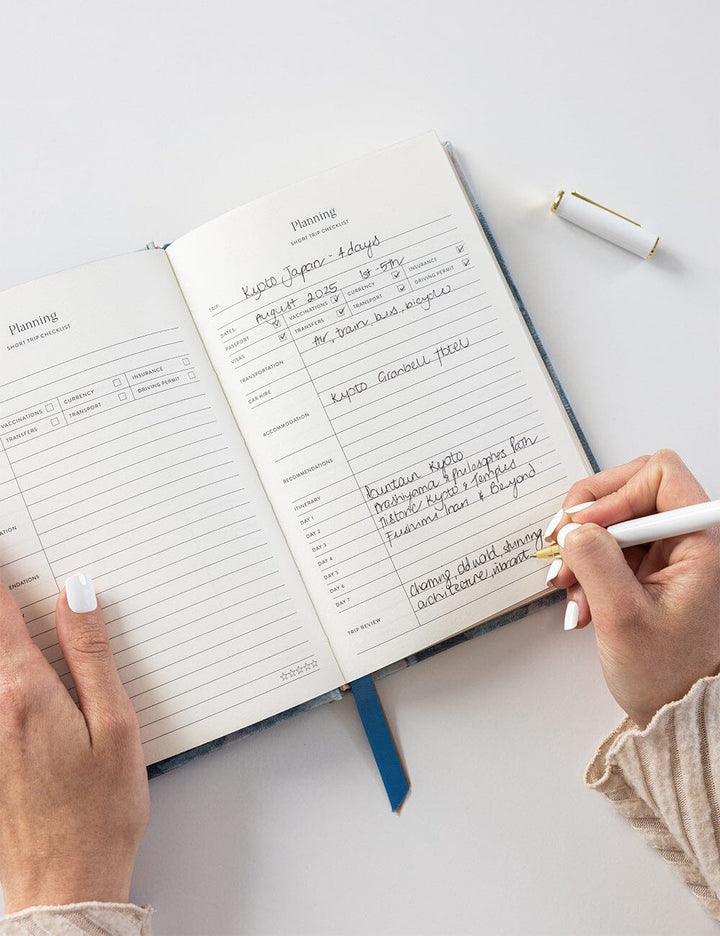 Planning
SHORT TRIP CHECKLIST
VACCINATIONS CURRENCY INSURANCE
TRANSFERS TRANSPORT DRIVING PERMIT
ATION
ENDATIONS
Planning
SHORT TRIP CHECKLIST
TRIP: Kyoto Japan - 4 days
DATES: August 2025 1st - 5th
PASSPORT VACCINATIONS CURRENCY INSURANCE
VISAS TRANSFERS TRANSPORT DRIVING PERMIT
TRANSPORTATION Air, train, bus, bicycle
CAR HIRE
ACCOMMODATION Kyoto Granbell Hotel
RECOMMENDATIONS
ITINERARY
DAY 1 Kyoto
DAY 2 Arashiyama & Philosophes Path
DAY 3 Historic Kyoto & Temples
DAY 4 Fushimi Inari & Beyond
DAY 5
DAY 6
DAY 7
TRIP REVIEW charming, old world, stunning
architecture, vibrant